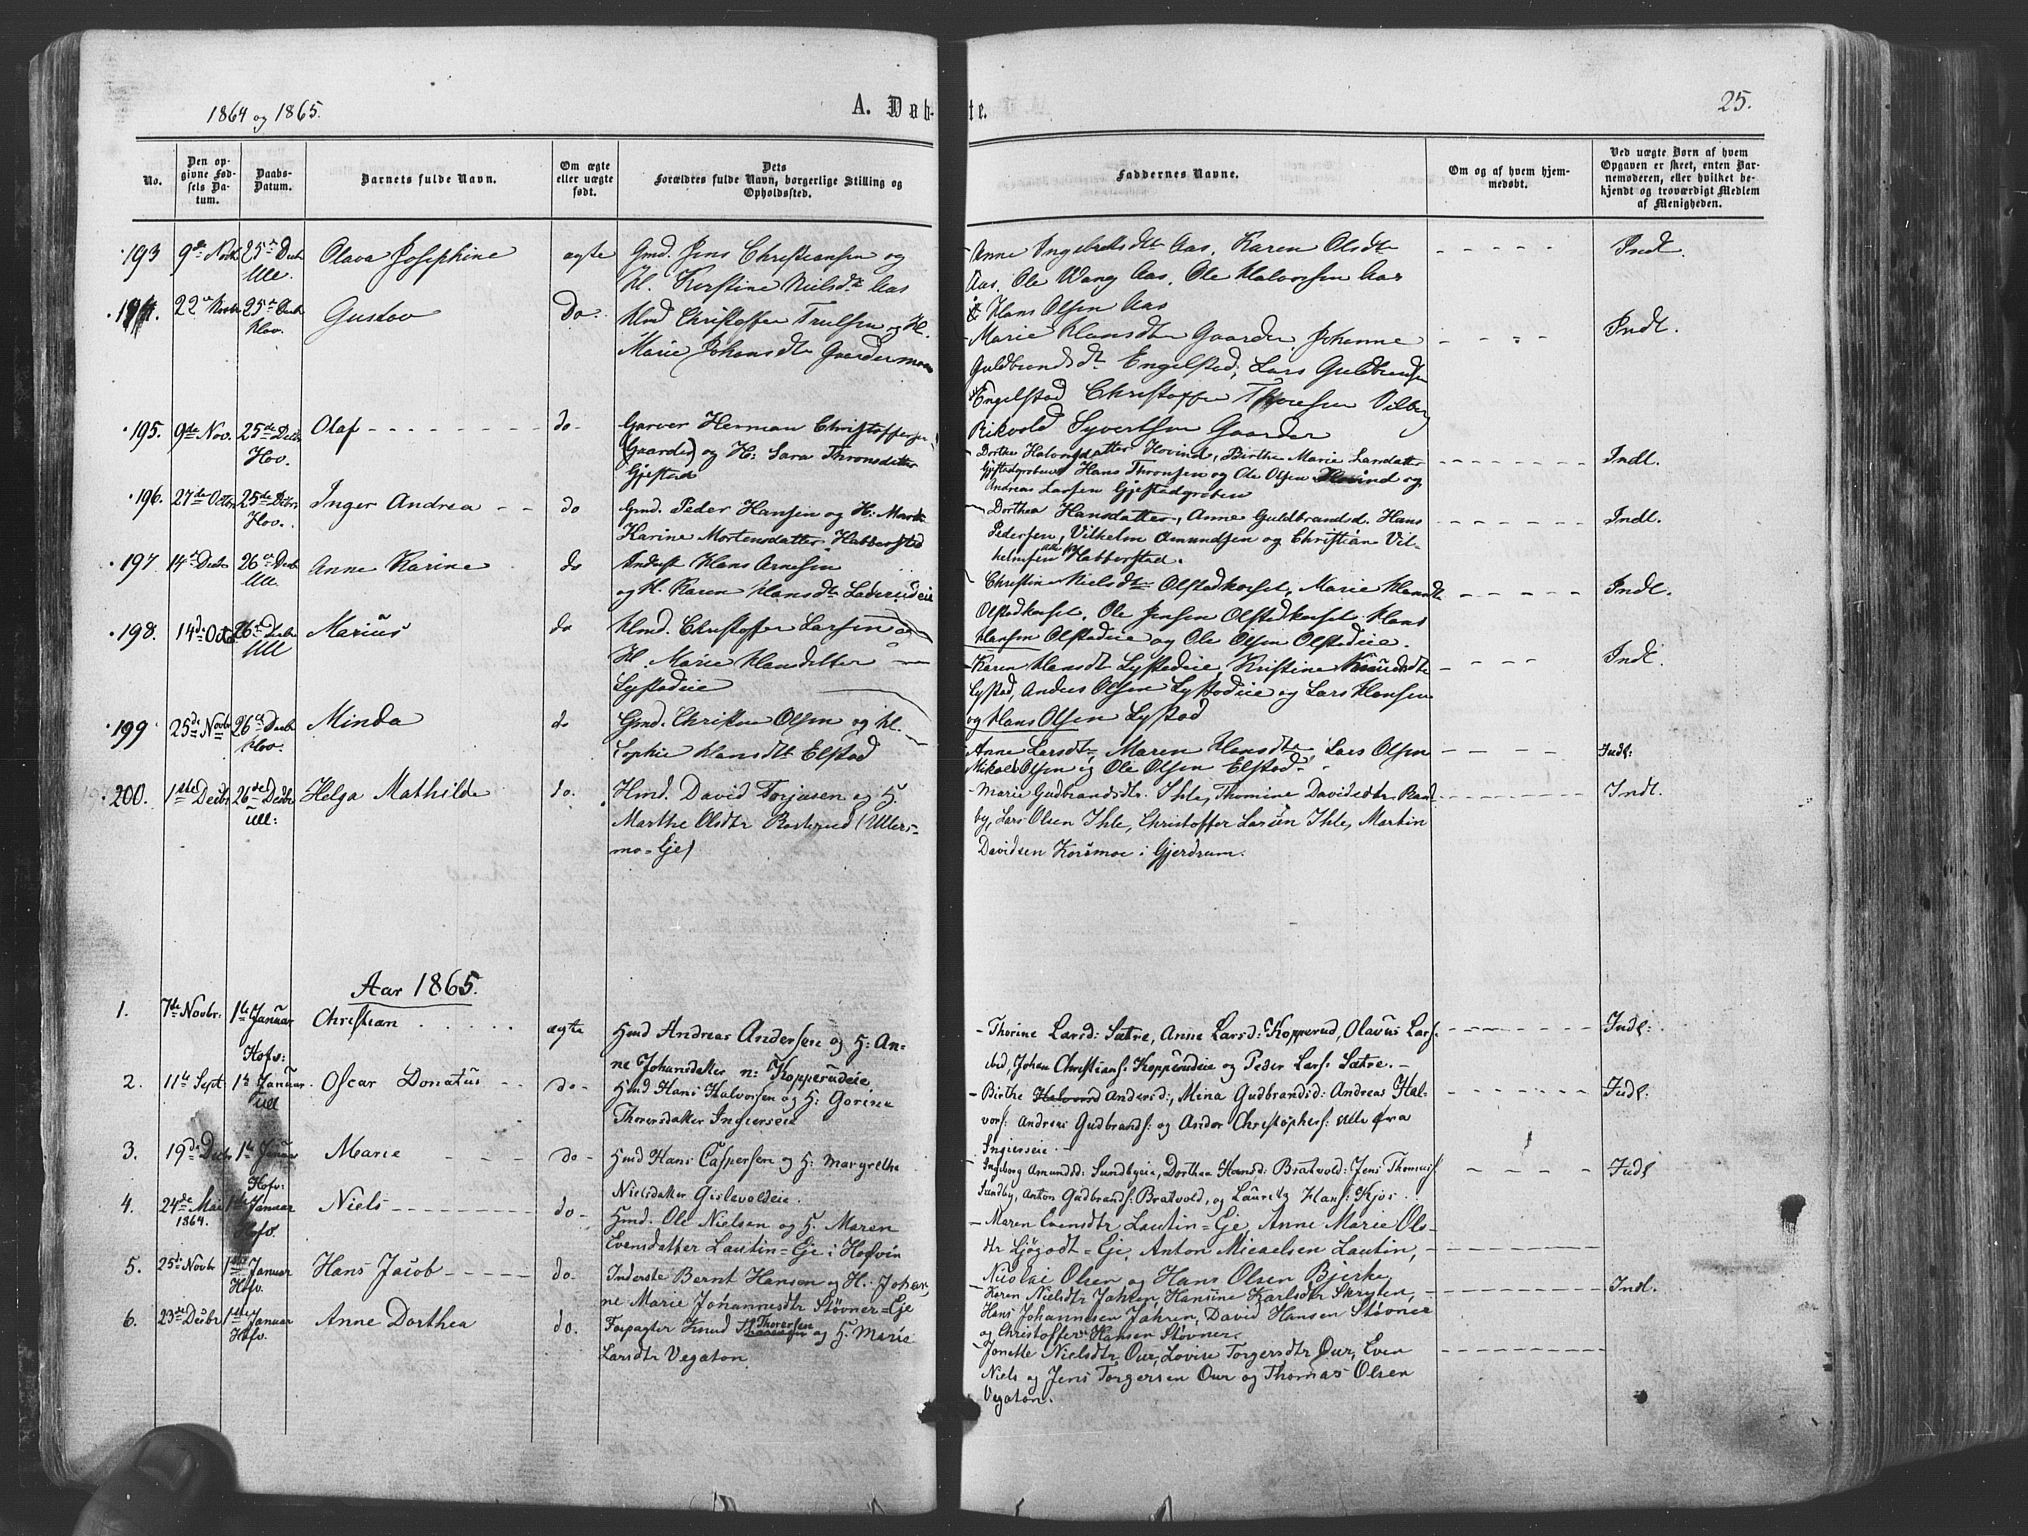 1864 og 1865.
A. Døb- te.
25.
No.
Den op-
givne Fød-
sels Da-
tum.
Daabs-
Datum.
Barnets fulde Navn.
Om ægte
eller uægte
født.
Dets
Forældres fulde Navn, borgerlige Stilling og
Opholdssted.
Faddernes Navne.
Om og af hvem hjem-
medøbt.
Ved uægte Børn af hvem
Opgaven er skeet, enten Bar-
nemoderen, eller hvilket be-
kjendt og troværdigt Medlem
af Menigheden.
193 9de Novbr 25de Decbr Olava Josephine ægte Gmd. Jens Christiansen og
Ull. H. Kirstine Nielsdtr Aas
Anne Ingebretsdtr Aas, Karen Olsdtr Indl.
Aas, Ole Wang Aas, Ole Halvorsen Aas
& Hans Olsen Aas
194. 22de Novbr 25de Decbr Gustav Do. Hmd Christoffer Trulsen og H.
Hov. Marie Johansdtr Gaardermoen
Marie Hansdtr Gaarder, Johanne Indl.
Guldbrandsdtr Engelstad, Lars Guldbrandsen
Engelstad Christoffer Vilberg
Rikvold Syvertsen Gaarder
195. 9de Nov. 25de Decbr Olaf do Garver Herman Christoffersen
Hov. (Gaarder) og H: Sara Thronsdatter
Gjestad
Dorthe Halvorsdatter Hovind, Birthe Marie Larsdatter Indl.
Gjestadgroben Hans Thronsen og Ole Olsen Hovind og
Andreas Larsen Gjestadgroben
196. 27de Octbr 25de Decbr Inger Andrea do Gmd. Peder Hansen og H: Marthe
Hov. Karine Mortensdatter Habberstad
Dorthea Hansdatter, Anne Guldbrandsd. Hans Indl.
Pedersen, Vilhelm Amundsen og Christian Vil-
helmsen alle fra Habberstad.
197 14de Decbr 26de Decbr Anne Karine do Inderst Hans Arnesen
Ull og H. Karen Hansdtr Laderudeie
Christine Nielsdtr Olstadkorset, Marie Hansdtr Indl.
Olstadkorset, Ole Jensen Olstadkorset, Hans
Hansen Olstadeie og Ole Olsen Olstadeie.
198. 14de Octbr 26de Decbr Marius do Hmd. Christoffer Larsen og
Ull H. Marie Hansdatter
Lystadeie
Karen Hansdtr Lystadeie, Kristine Knudsdtr Indl.
Lystad, Anders Olsen Lystadeie og Lars Hansen
og Hans Olsen Lystad
199 25de Novbr 26de Decbr Minda do Gmd. Christian Olsen og H.
Hov. Sophie Hansdtr Elstad
Anne Larsdtr, Maren Hansdtr Lars Olsen Indl:
Mikael Olsen og Ole Olsen Elstad.
200. 1ste Decbr 26de Decbr Helga Mathilde do. Hmd. David Torjusen og H.
Ull: Marthe Olsdtr Rosterud (Ullers-
mo-Eje)
Marie Gudbrandsdtr. Ihle, Thomine Davidsdtr Rand- Indl.
by, Lars Olsen Ihle, Christoffer Larsen Ihle, Martin
Davidsen Korsmoe i Gjerdrum.
Aar 1865.
1. 7de Novbr: 1ste Januar Christian ægte Hmd Andreas Andersen og H: An-
Hofv: ne Johansdatter n: Kopperudeie
Thorine Larsd: Sætre, Anne Larsd: Kopperud, Olavus Lars: Indl:
ibid, Johan Christians: Kopperudeie og Peder Lars: Sætre.
2. 11te Sept 1ste Januar Oscar Donatus do Hmd Hans Halvorsen og H: Gorine
Ull Thorersdatter Ingierseie
Birthe Halvorsd Andersd:, Mina Gudbrandsd: Andreas Hal- Indl:
vors: Andreas Gudbrands: og Andor Christophers: alle fra
Ingierseie.
3. 19de Decbr 1ste Januar Marie do Hmd Hans Caspersen og H: Margrethe
Hofv: Nielsdatter Gislevoldeie.
Ingeborg Amundsd: Sundbyeie, Dorthea Hansd: Bratvold, Jens Thomas: Indl
Sundby, Anton Gudbrands: Bratvold, og Lauritz Hans: Kjos.
4. 24de Mai 1ste Januar Niels do Hmd. Ole Nielsen og H. Maren
1864. Hofv. Evensdatter Lautin-Eje i Hofvin
Maren Evensdtr Lautin-Eje, Anne Marie Ols-
dtr Ljøgodt-Eje, Anton Micaelsen Lautin,
Nicolai Olsen og Hans Olsen Bjerke
5. 25de Novbr 1ste Januar Hans Jacob do. Inderste Bernt Hansen og H. Johan-
Hofv. ne Marie Johannesdtr Støvner-Eje
Karen Nielsdtr Jahren, Hansine Karlsdtr Skryten, Indl.
Hans Johannesen Jahren, David Hansen Støvner
og Christoffer Hansen Støvner.
6. 23de Decbr 1ste Januar Anne Dorthea do. Forpagter Knud Thorersen og H. Marie
Hofv. Larsdtr Vegaton
Jonette Nielsdtr Our, Lovise Torgersdtr Our, Even
Niels og Jens Torgersen Our og Thomas Olsen
Vegaton.